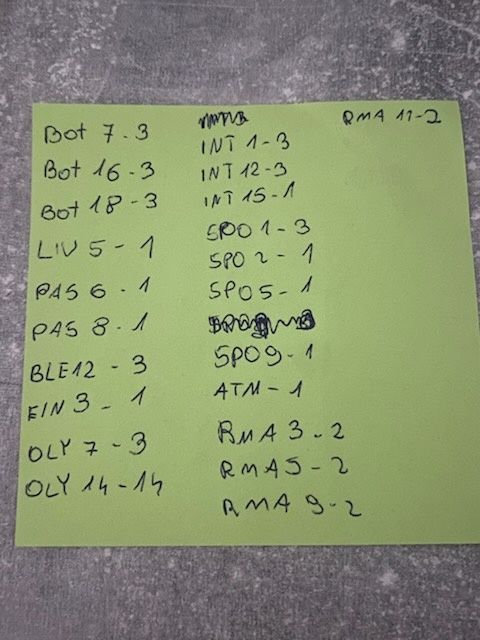 Bot 7-3
Bot 16-3
Bot 18-3
LIV 5-1
PAS 6-1
PAS 8-1
BLE12-3
EIN 3-1
OLY 7-3
OLY 14-14
INT 1-3
INT 12-3
INT 15-1
SPO 1-3
SPO 2-1
SPO5-1
SPO9-1
ATM-1
RMA 3-2
RMA5-2
RMA 9-2
RMA 11-2